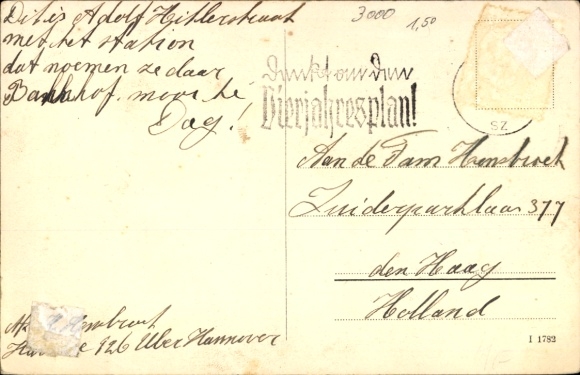 Dit is Adolf Hitlerstraat
met het station
dat noemen ze daar
Bahnhof. mooi he
Dag!
3000
1,50
Denkt an den
Vierjahresplan!
SZ
Aan de Fam Hensbroek
Zuiderparklaan 377
den Haag
Holland
126 Uber Hannover
I 1782